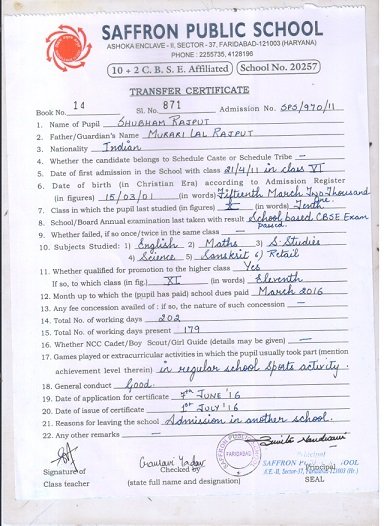 SAFFRON PUBLIC SCHOOL
ASHOKA ENCLAVE - II, SECTOR - 37, FARIDABAD-121003 (HARYANA)
PHONE : 2255735, 4128196
10 + 2 C. B. S. E. Affiliated School No. 20257
TRANSFER CERTIFICATE
Book No. 14 Sl. No. 871 Admission No. SPS/970/11
1. Name of Pupil SHUBHAM RAJPUT
2. Father/Guardian's Name MURARI LAL RAJPUT
3. Nationality Indian
4. Whether the candidate belongs to Schedule Caste or Schedule Tribe –
5. Date of first admission in the School with class 21/4/11 in class VI
6. Date of birth (in Christian Era) according to Admission Register
(in figures) 15/03/01 (in words) Fifteenth March Two Thousand One.
7. Class in which the pupil last studied (in figures) X (in words) Tenth
8. School/Board Annual examination last taken with result School based CBSE Exam passed.
9. Whether failed, if so once/twice in the same class –
10. Subjects Studied: 1) English 2) Maths 3) S. Studies
4) Science 5) Sanskrit 6) Retail
11. Whether qualified for promotion to the higher class Yes
If so, to which class (in fig.) XI (in words) Eleventh
12. Month up to which the (pupil has paid) school dues paid March 2016
13. Any fee concession availed of : if so, the nature of such concession –
14. Total No. of working days 202
15. Total No. of working days present 179
16. Whether NCC Cadet/Boy Scout/Girl Guide (details may be given) –
17. Games played or extracurricular activities in which the pupil usually took part (mention
achievement level therein) in regular school sports activity.
18. General conduct Good.
19. Date of application for certificate 7th JUNE '16
20. Date of issue of certificate 1st JULY '16
21. Reasons for leaving the school Admission in another school.
22. Any other remarks –
Signature of
Class teacher
Gaurav Yadav
Checked by
(state full name and designation)
SAFFRON PUBLIC
FARIDABAD
Principal
SAFFRON PUBLIC SCHOOL
Principal
SEAL